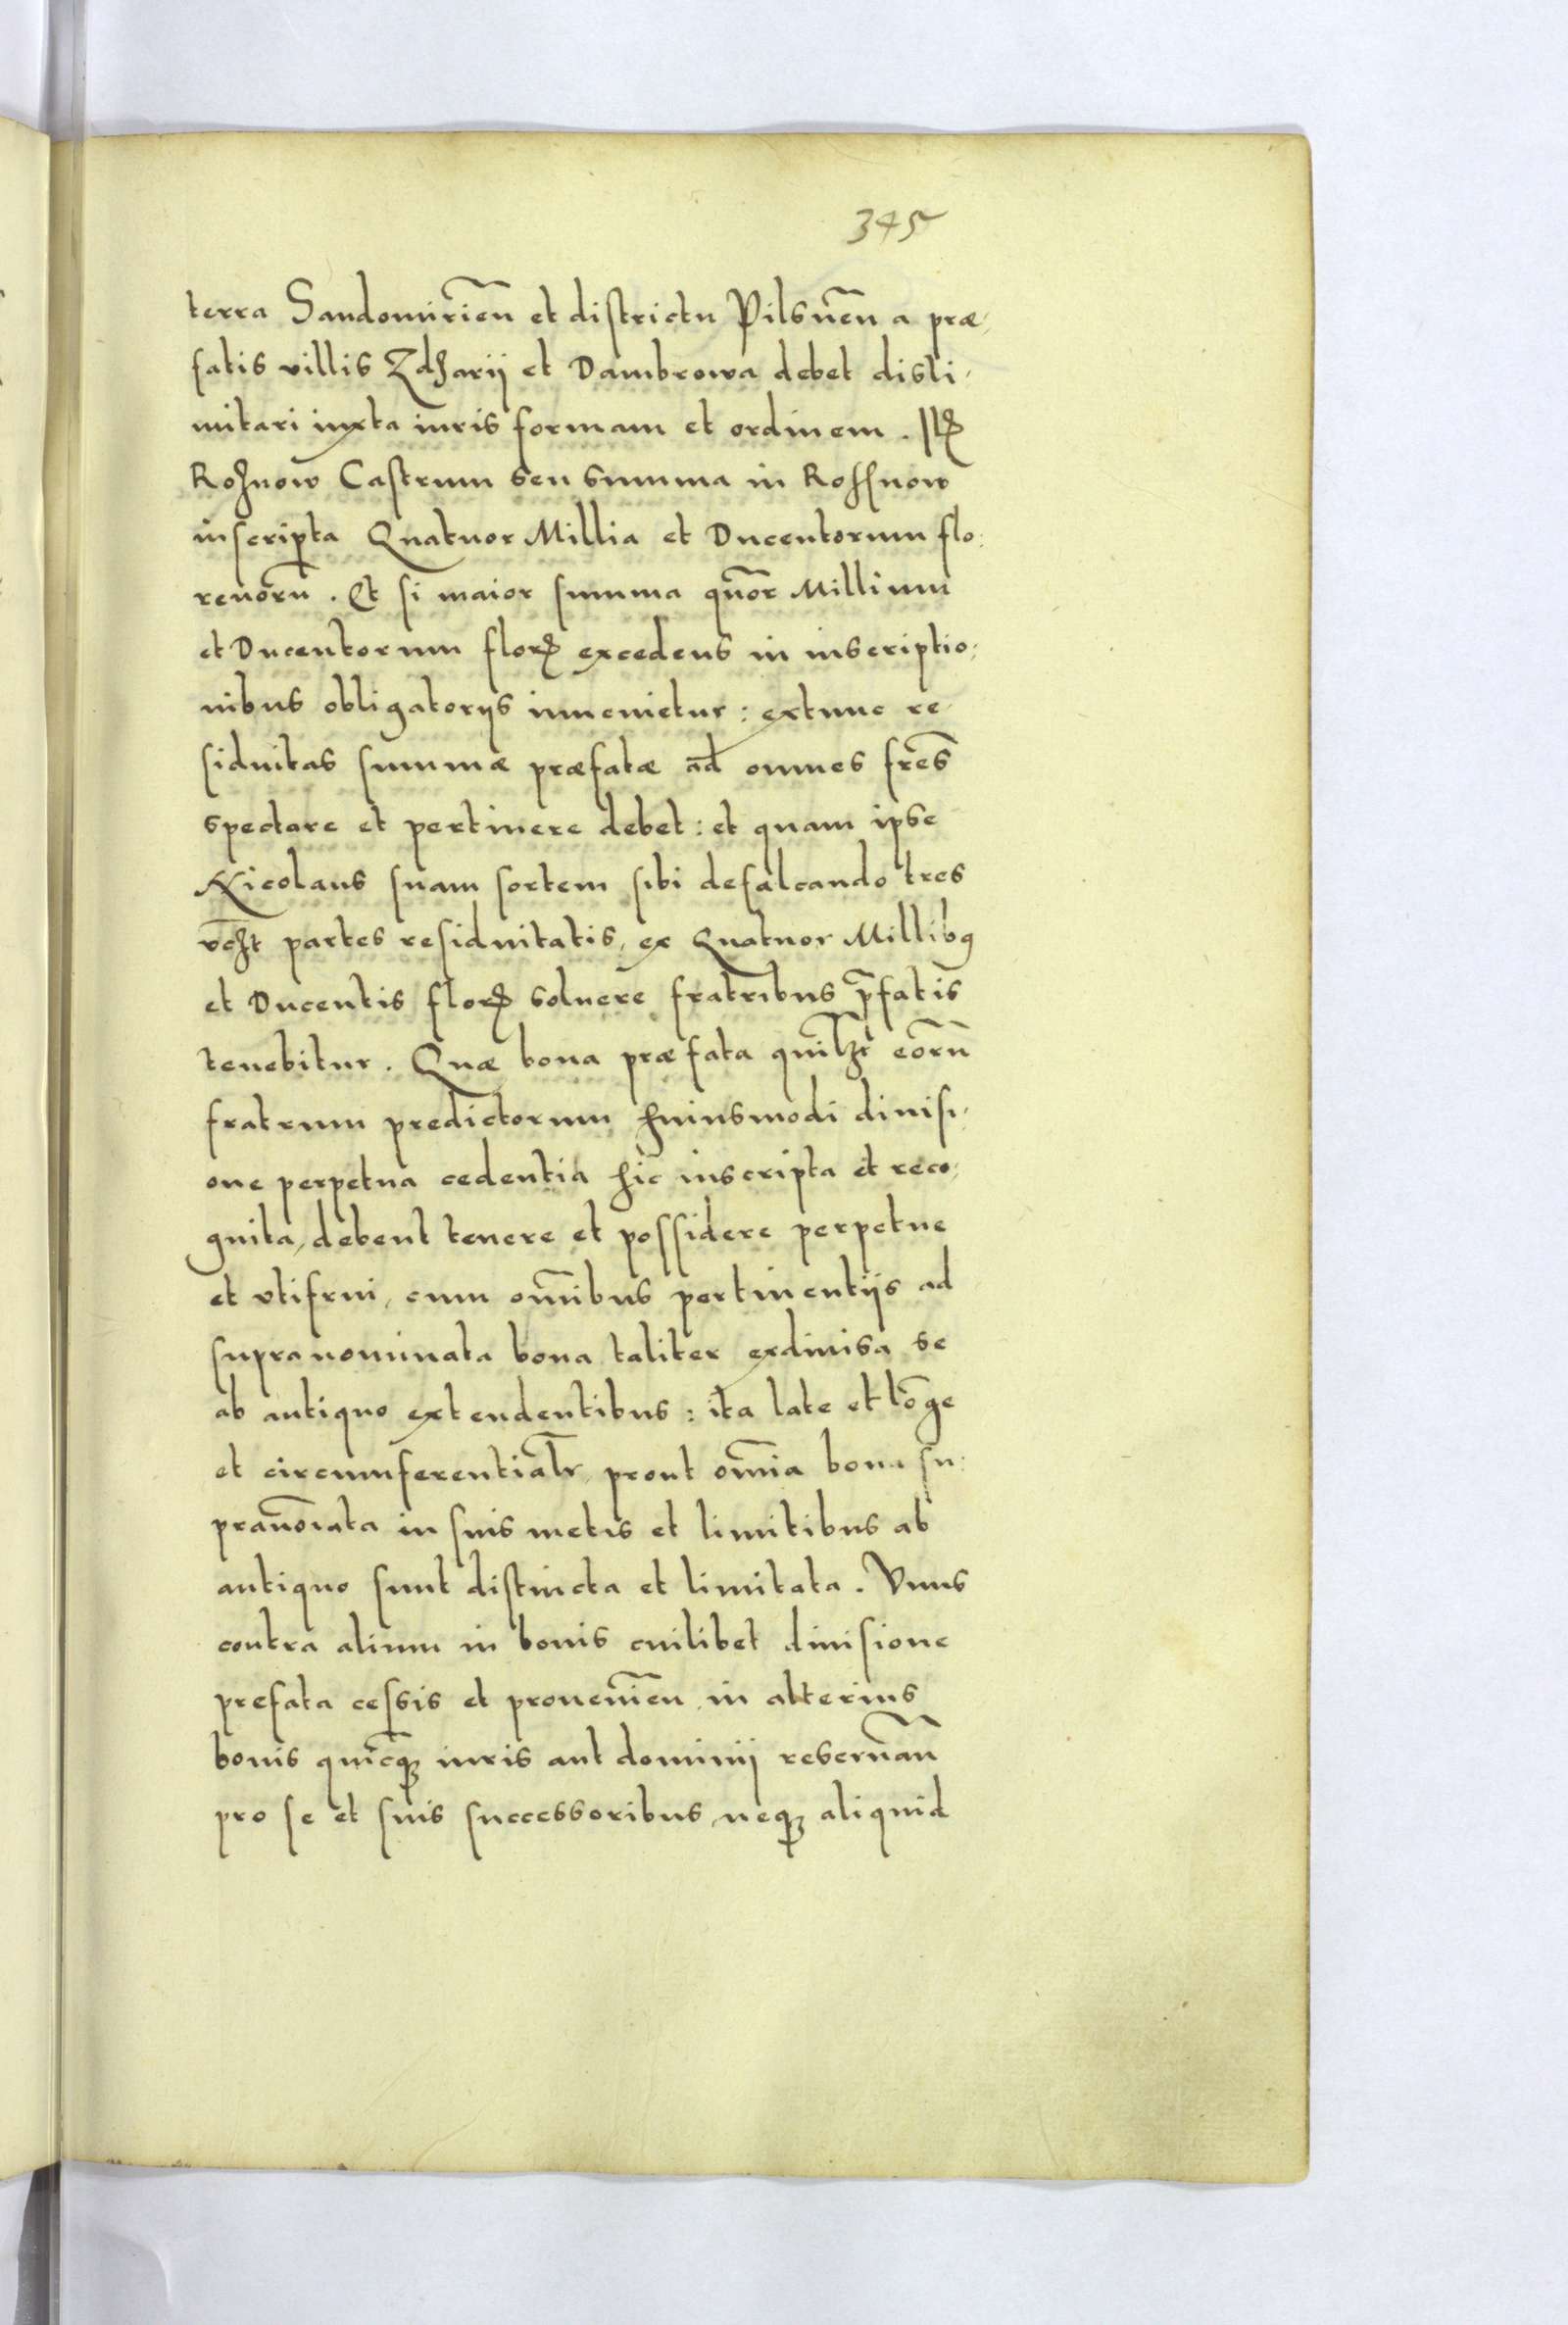 345
terra Sandomirień et districtu Pilsneń a præ-
fatis villis Zdharii et Dambrowa debet disli-
mitari iuxta iuris formam et ordinem. Itꝫ
Rohnow Castrum seu summa in Rossnow
inscripta Quatuor Millia et Ducentorum flo:
renorū. Et si maior summa quōr Millium
et Ducentorum florꝫ excedens in inscriptio:
nibus obligatoriis inuenietur: extunc re-
siduitas summæ præfatæ ad omnes frēs
spectare et pertinere debet: et quam ipse
Nicolaus suam sortem sibi defalcando tres
vꝫt partes residuitatis, ex Quatuor Millibꝯ
et Ducentis florꝫ soluere fratribus p̄fatis
tenebitur. Quæ bona præfata quilꝫt eorū
fratrum predictorum huiusmodi diuisi-
one perpetua cedentia hic inscripta et reco-
gnita, debent tenere et possidere perpetue
et vtifrui, cum om̄ibus pertinentiis ad
supranominata bona taliter exdiuisa se
ab antiquo extendentibus: ita late et lōge
et circumferentialr̄, prout om̄ia bona su:
pranōiata in suis metis et limitibus ab
antiquo sunt distincta et limitata. Vnus
contra alium in bonis cuilibet diuisione
prefata cessis et prouenień in alterius
bonis quicq̄ꝫ iuris aut dominii reseruań
pro se et suis successoribus, neqꝫ aliquid